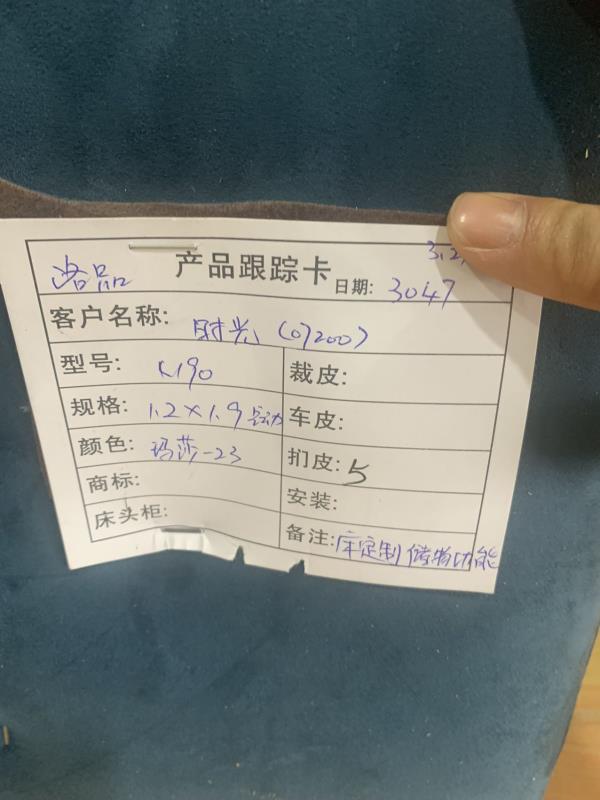 洛品 产品跟踪卡 3.2
日期: 3047
客户名称: 时光 (07200)
型号: K190 裁皮:
规格: 1.2×1.9 车皮:
颜色: 玛莎-23 扪皮: 5
商标: 安装:
床头柜: 备注: 定制储物功能